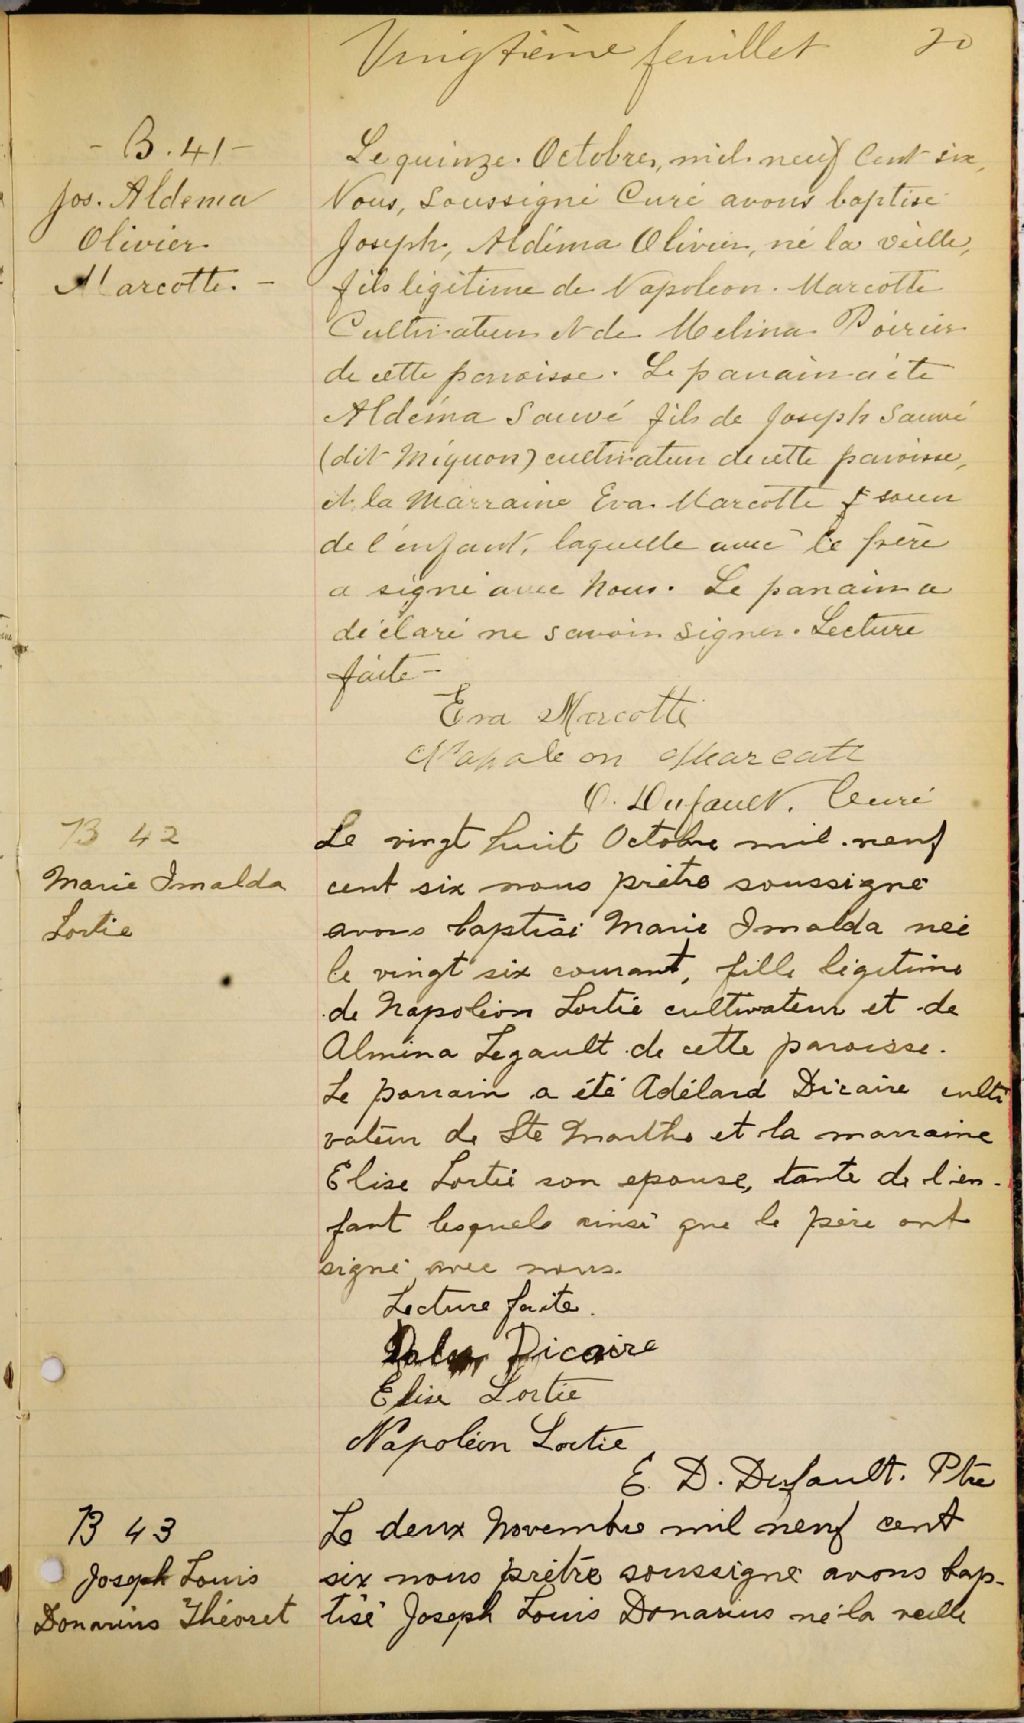 Vingtième feuillet 20
- B. 41 -
Jos. Aldema
Olivier
Marcotte. -
Le quinze Octobre, mil neuf cent six,
Nous, soussigné Curé avons baptisé
Joseph, Aldéma Olivier, né la veille,
fils légitime de Napoleon Marcotte
Cultivateur et de Melina Poirier
de cette paroisse. Le parrain a été
Aldéma Sauvé fils de Joseph Sauvé
(dit Miguon) cultivateur de cette paroisse,
et la Marraine Eva Marcotte soeur
de l'enfant, laquelle avec le frère
a signé avec Nous. Le parrain a
déclaré ne savoir signer. Lecture
faite -
Eva Marcotte
Napoleon Marcott
O. Dufault. Curé
B 42
Marie Imalda
Lortie
Le vingt huit Octobre mil neuf
cent six nous prêtre soussigné
avons baptisé Marie Imalda née
le vingt six courant, fille légitime
de Napoléon Lortie cultivateur et de
Almina Legault de cette paroisse.
Le parrain a été Adélard Dicaire culti
vateur de Ste Marthe et la marraine
Elise Lortie son epouse, tante de l'en-
fant lesquels ainsi que le père ont
signé avec nous.
Lecture faite.
Dicaire
Elise Lortie
Napoléon Lortie
E. D. Dufault. Ptre
B 43
Joseph Louis
Donarius Théoret
Le deux Novembre mil neuf cent
six nous prêtre soussigné avons bap-
tisé Joseph Louis Donarius né la veille